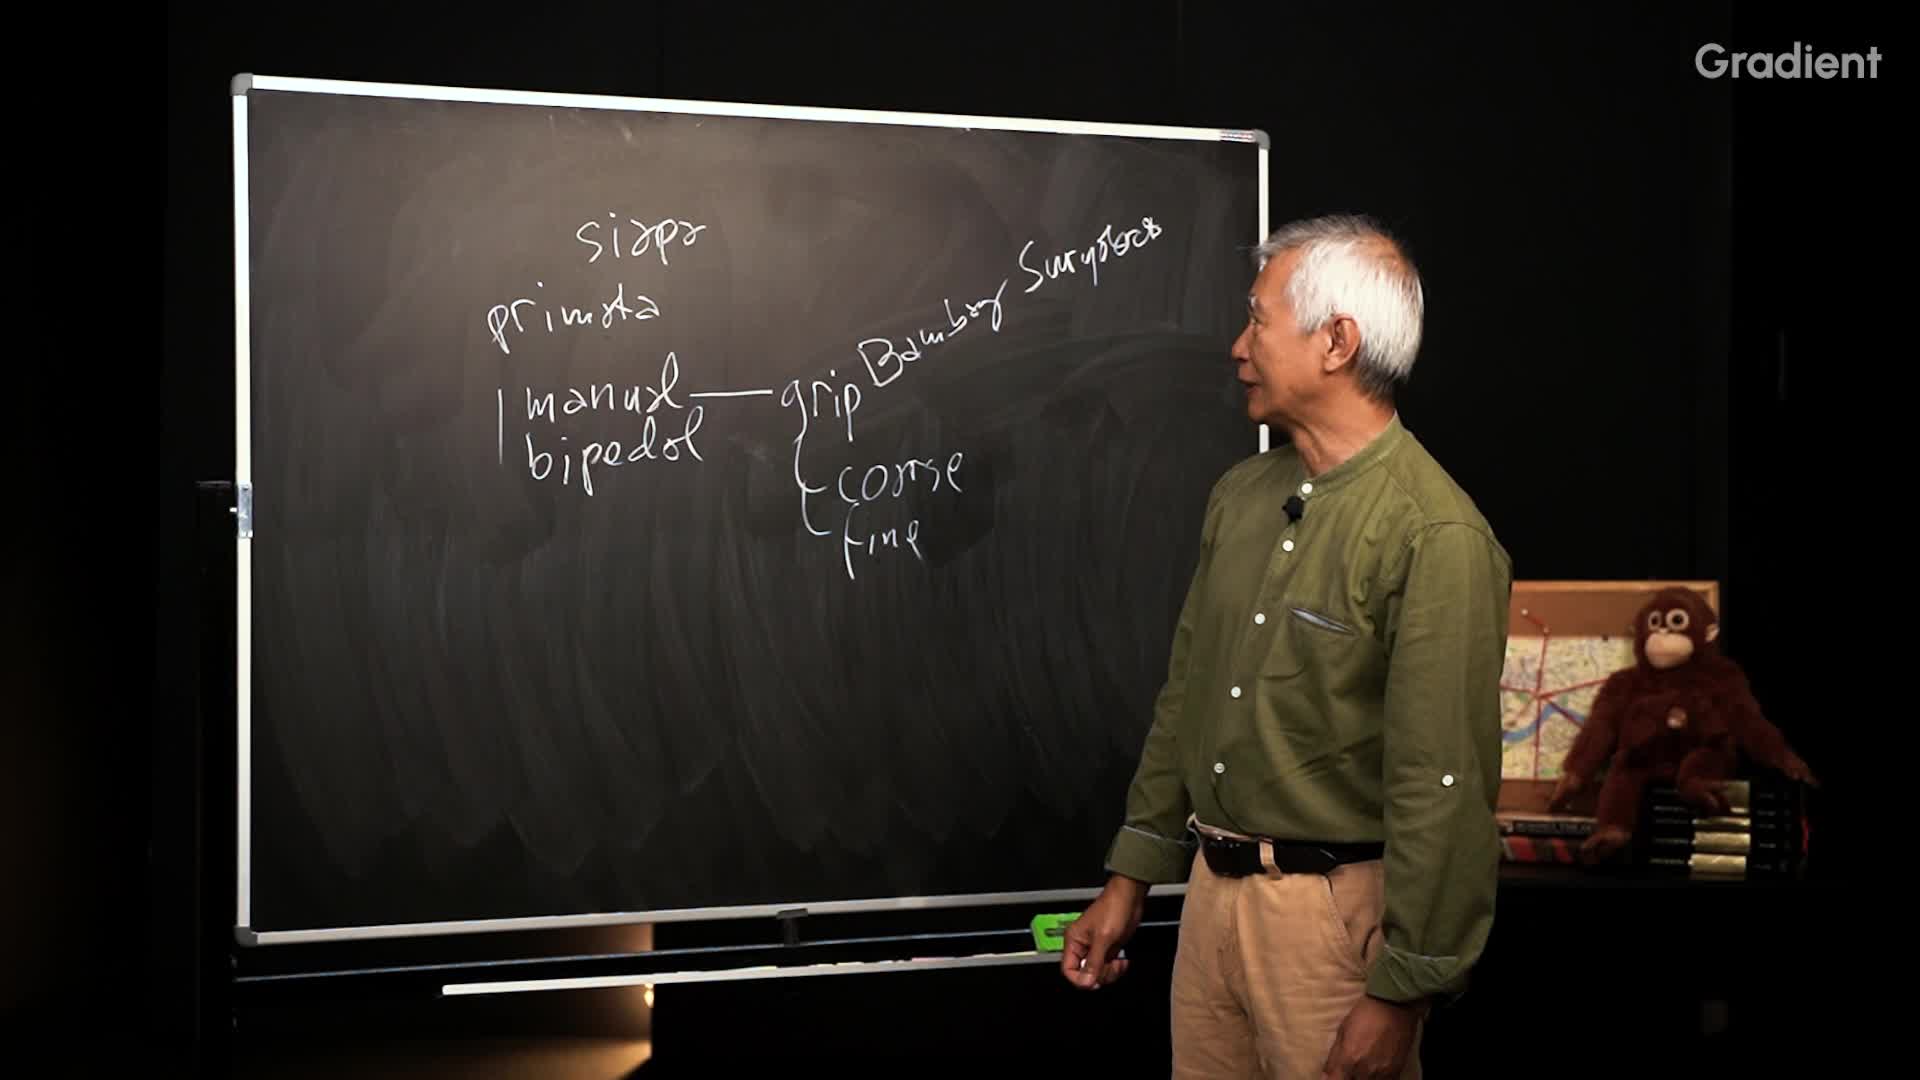 Gradient
siapa
primata
manual — grip Bambang
bipedal
coarse
fine